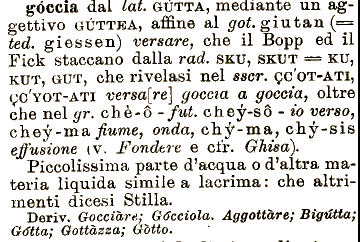 góccia dal lat. GÚTTA, mediante un ag-
gettivo GÚTTEA, affine al got. giutan (=
ted. giessen) versare, che il Bopp ed il
Fick staccano dalla rad. SKU, SKUT = KU,
KUT, GUT, che rivelasi nel sscr. ÇC'OT-ATI,
ÇC'YOT-ATI versa[re] goccia a goccia, oltre
che nel gr. chè-ô - fut. chey-sô - io verso,
chey-ma fiume, onda, chý-ma, chý-sis
effusione (v. Fondere e cfr. Ghisa).
Piccolissima parte d'acqua o d'altra ma-
teria liquida simile a lacrima: che altri-
menti dicesi Stilla.
Deriv. Gocciàre; Gócciola. Aggottàre; Bigútta;
Gótta; Gottàzza; Gòtto.